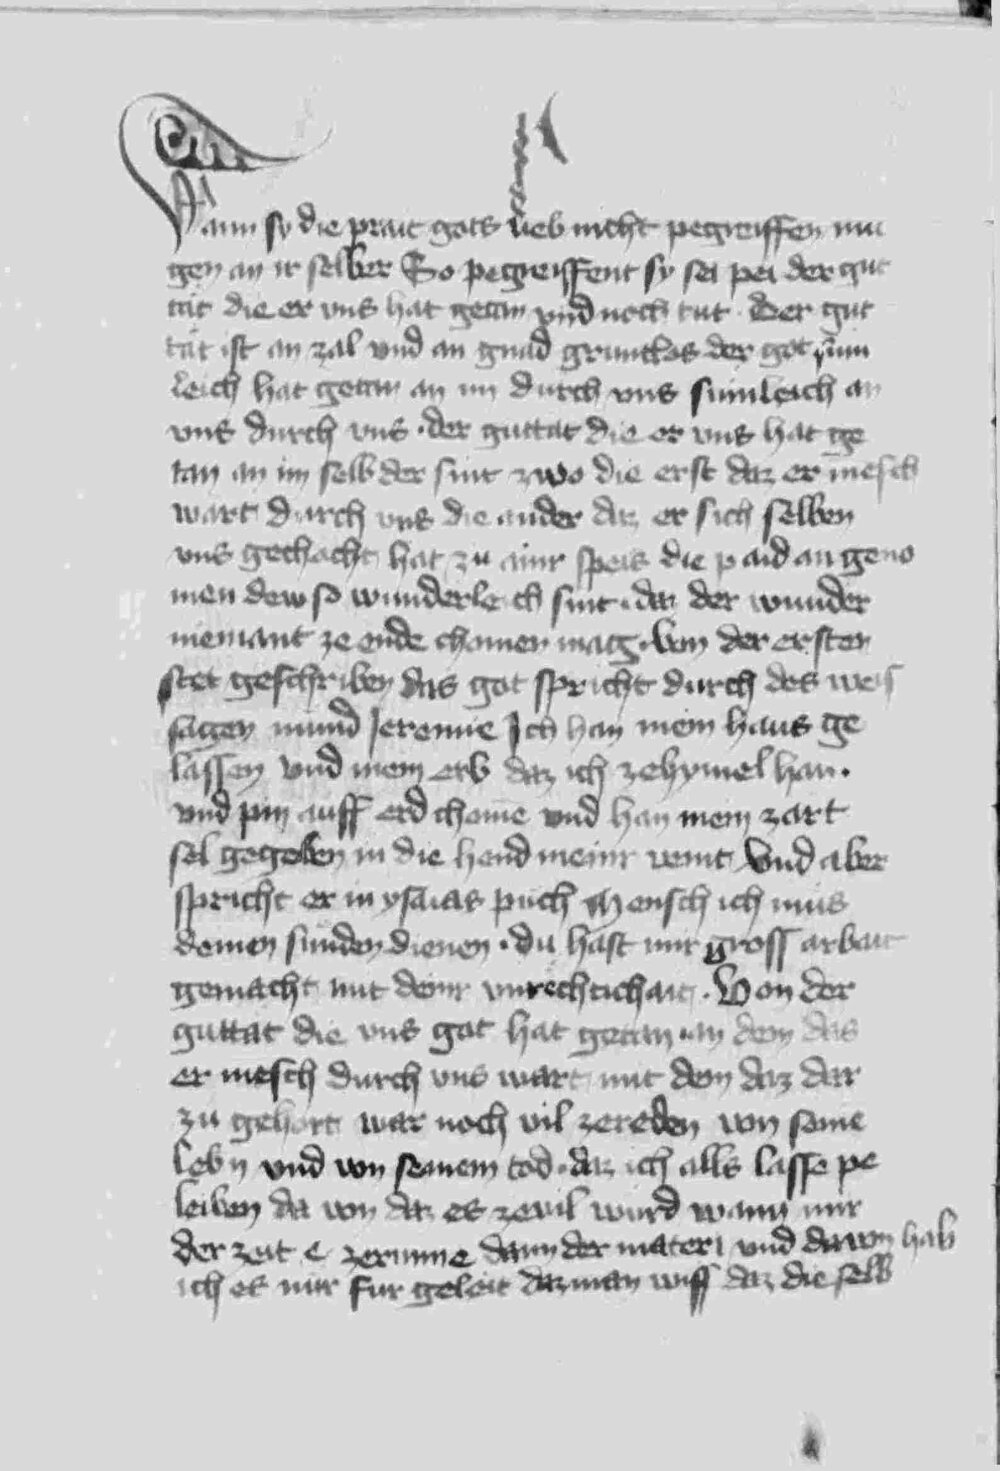 Wann sy die prait gots lieb nicht pegreiffen mu
gen an ir selber So pegreiffent sy sei pei der gut
tat die er vns hat getan vnd noch tut · Der gut
tat ist an zal vnd an gnad gruntlos der got sum
leich hat getan an im durch vns sumleich an
vns durch vns · der guttat die er vns hat ge
tan an im selb der sint zwo die erst daz er mesch
wart durch vns die ander daz er sich selben
vns gechocht hat zu ainr speis die paid an geno
men dew so wunderleich sint · daz der wunder
niemant ze ende chomen mag · Von der ersten
stet geschriben das got spricht durch des weis
sagen mund Jeremie Ich han mein haus ge
lassen vnd mein erb daz ich zehymel han ·
vnd pin auff erd chome vnd han mein zart
sel gegeben in die hend meinr veint Vnd aber
spricht er in ysaias puch Mensch ich mus
deinen sunden dienen · du hast mir gross arbait
gemacht mit deinr vnrechtichait · Von der
guttat die vns got hat getan · an dem das
er mesch durch vns wart mit dem daz dar
zu gehort war noch vil zereden von seine
lebn vnd von seinem tod · daz ich alls lasse pe
leiben da von daz es zeuil wurd wann mir
der zeit e zerunne dann der materi vnd dauon hab
ich es mir fur geleit daz man wiss daz die selb